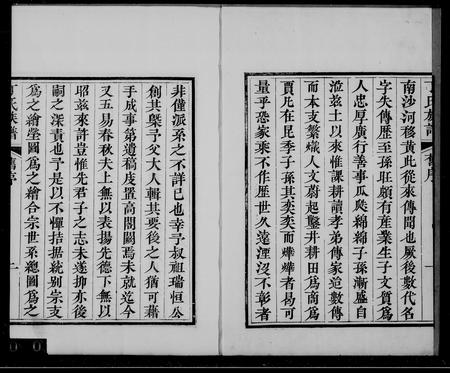 丁氏族譜 舊序 一
南沙河移黃此從來傳聞也厥後數代名
字失傳歷至孫旺願有產業生子文質爲
人忠厚廣行善事瓜瓞綿綿子孫漸盛自
涖茲土以來惟課耕讀孝弟傳家迨數傳
而本支繁熾人文蔚起鑿井耕田爲商爲
賈凡在昆季子孫其奕奕而嶙嶙者曷可
量乎恐家乘不作歷世久遠湮沒不彰者
非僅派系之不詳已也幸予叔祖瑞恒公
創其槩予父大人輯其要後之人猶可藉
手成事第遺稿庋置高閣闕焉未就迄今
又五易春秋夫上無以表揚先德下無以
昭茲來許豈惟先君子之志未遂抑亦後
嗣之深責也予是以不憚拮据統别宗支
爲之繪塋圖爲之繪合宗世系總圖爲之
丁氏族譜 舊序 二